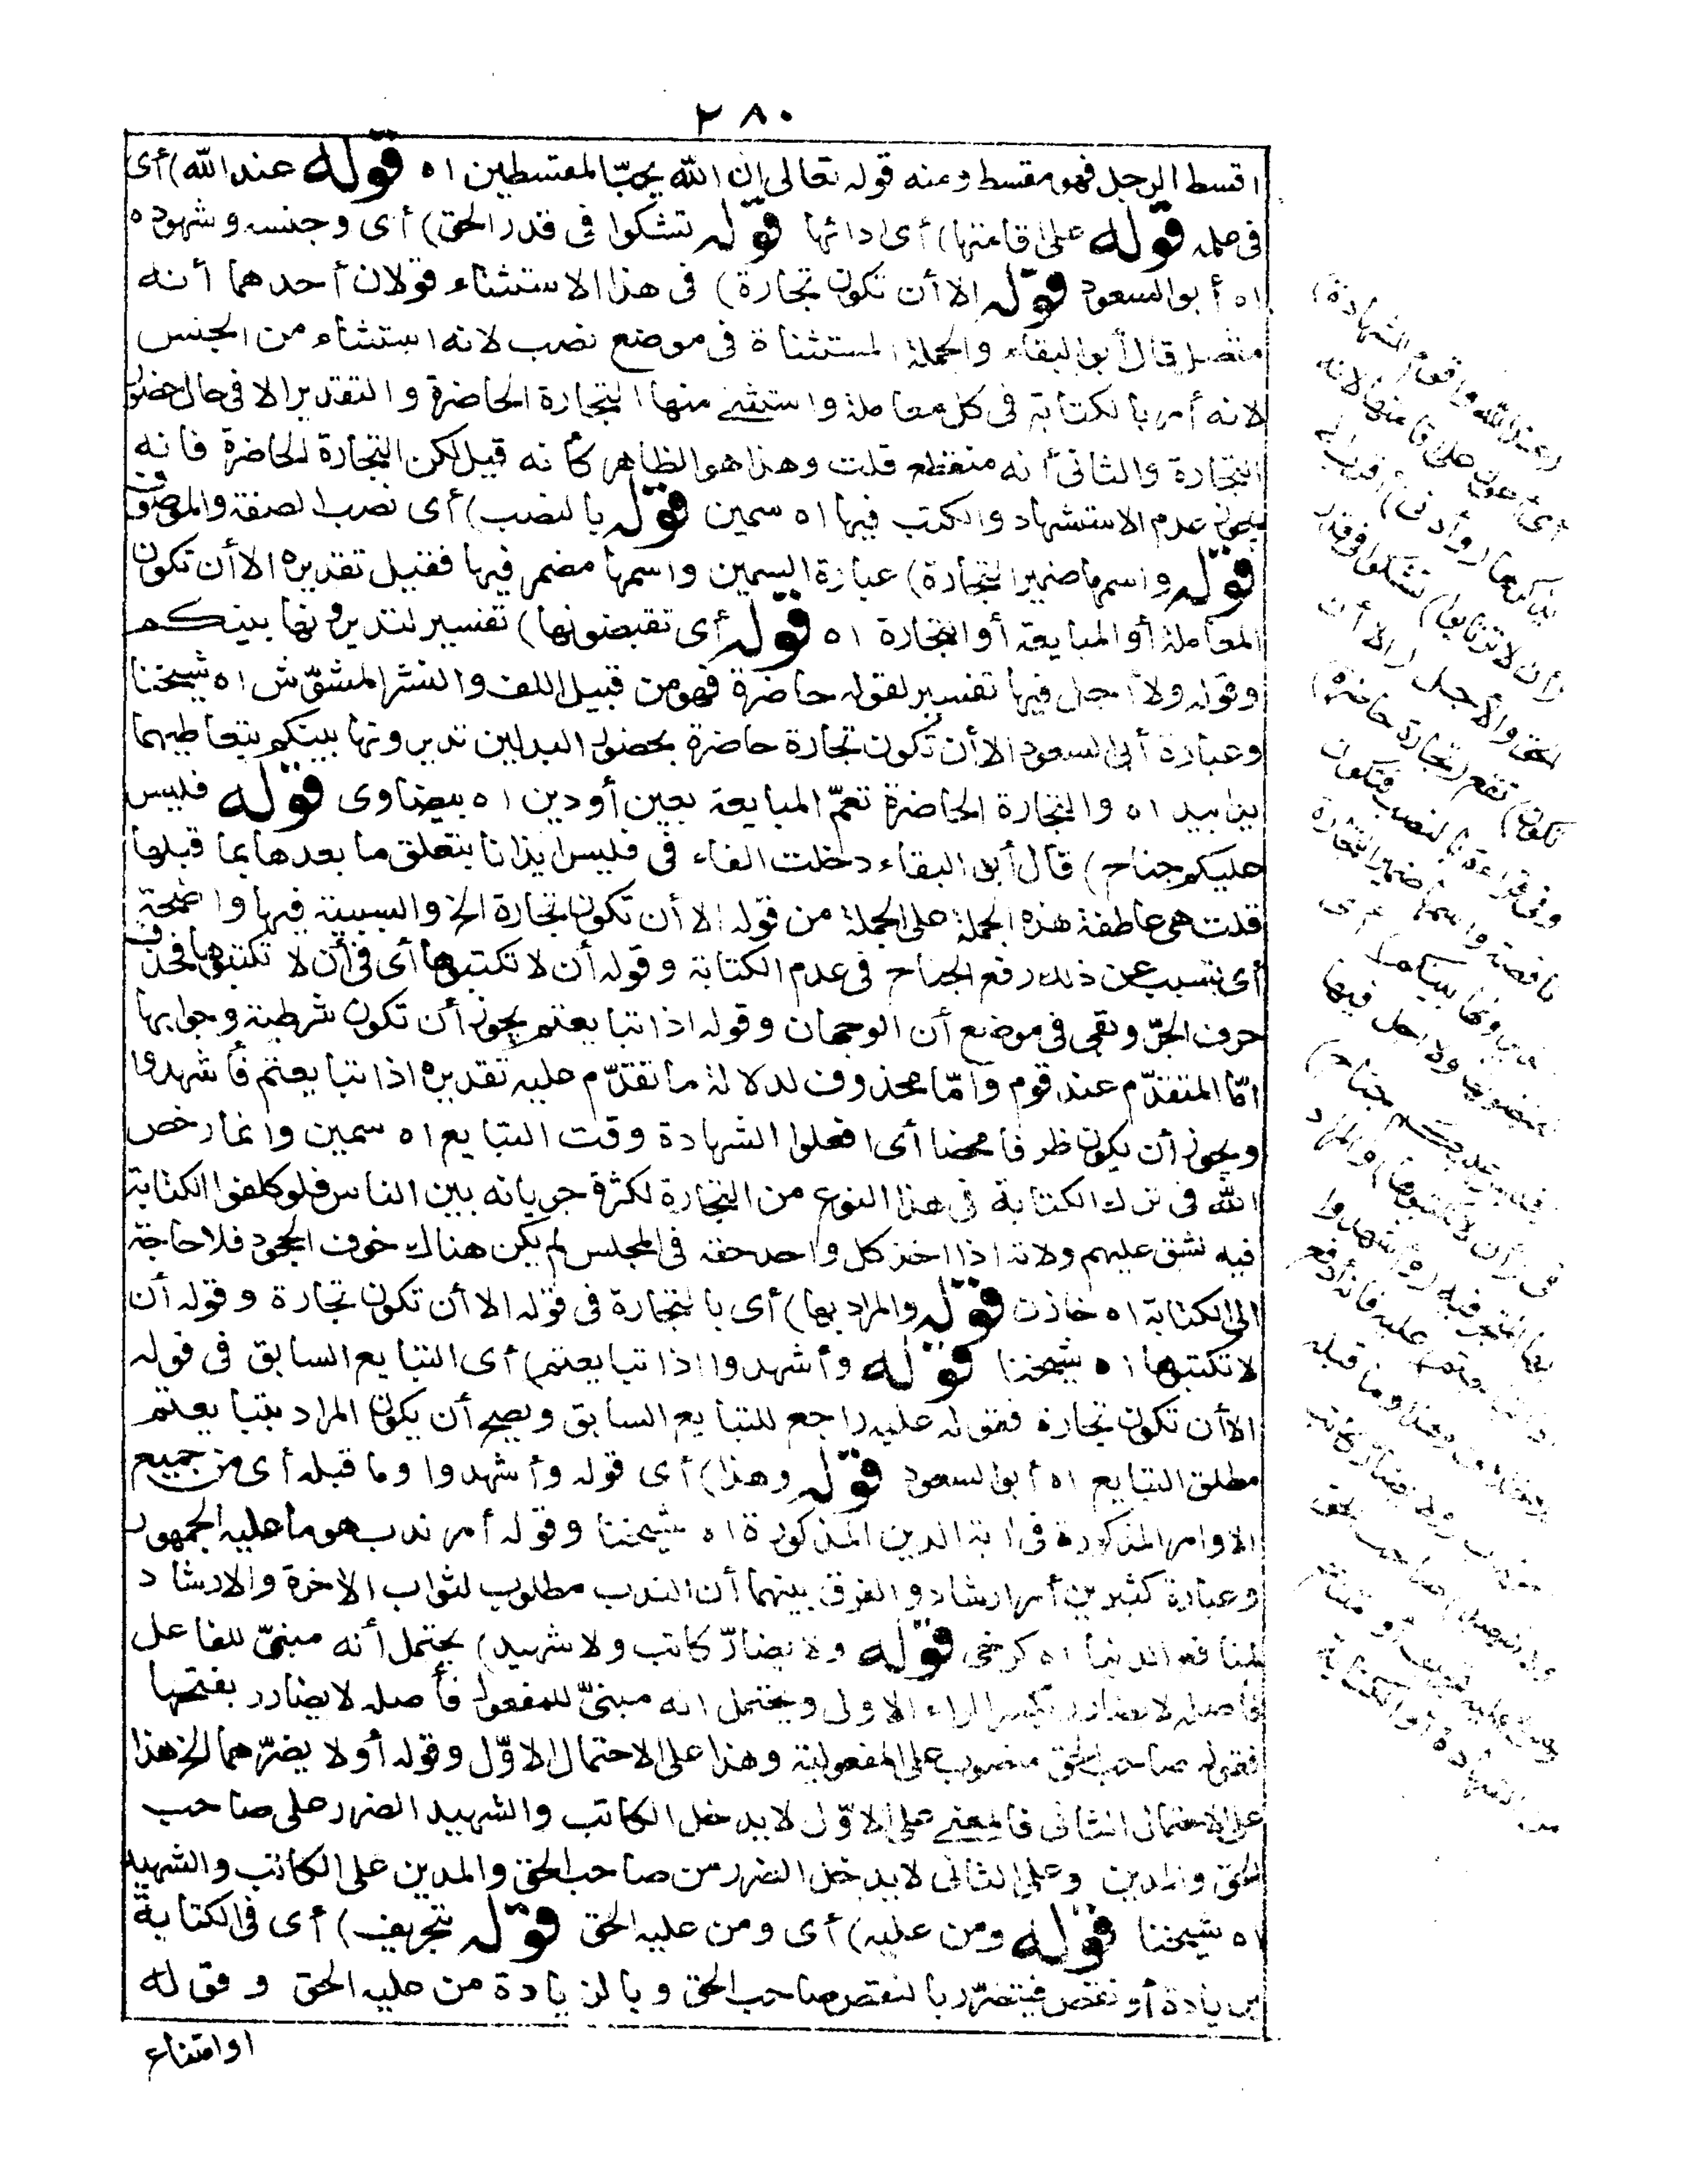 ٢٨٠
اقسط الرجل فهو مقسط ومنه قوله تعالى ان الله يحبّ المقسطين اه قوله عند الله) أى
فى علمه قوله على اقامتها) أى ادائها قوله تشكوا فى قدر الحق) أى وجنسه وشهوده
اه أبو السعود قوله الا أن تكون تجارة) فى هذا الاستثناء قولان أحدهما أنه
متصل قال أبو البقاء والجملة المستثناة فى موضع نصب لانه استثناء من الجنس
لانه أمر بالكتابة فى كل معاملة واستثنى منها التجارة الحاضرة والتقدير الا فى حال حضور
التجارة والثانى أنه منقطع قلت وهذا هو الظاهر كأنه قيل لكن التجارة الحاضرة فانه
يجوز عدم الاستشهاد والكتب فيها اه سمين قوله بالنصب) أى نصب الصفة والموصوف
قوله واسمها ضمير التجارة) عبارة السمين واسمها مضمر فيها فقيل تقديره الا أن تكون
المعاملة أو المبايعة أو التجارة اه قوله أى تقبضونها) تفسير لتديرونها بينكم
وقوله ولا أجل فيها تفسير لقوله حاضرة فهو من قبيل اللف والنشر المشوّش اه شيخنا
وعبارة أبى السعود الا أن تكون تجارة حاضرة بحضور البدلين تديرونها بينكم بتعاطيهما
يدا بيد اه والتجارة الحاضرة تعمّ المبايعة بعين أو دين اه بيضاوى قوله فليس
عليكم جناح) قال أبو البقاء دخلت الفاء فى فليس ايذانا بتعلق ما بعدها بما قبلها
قلت هى عاطفة هذه الجملة على الجملة من قوله الا أن تكون تجارة الخ والسببية فيها واضحة
أى تسبب عن ذلك رفع الجناح فى عدم الكتابة وقوله أن لا تكتبوها أى فى أن لا تكتبوها فحذف
حرف الجرّ وبقى فى موضع أن الوجهان وقوله اذا تبايعتم يجوز أن تكون شرطية وجوابها
امّا المتقدّم عند قوم وامّا محذوف لدلالة ما تقدّم عليه تقديره اذا تبايعتم فأشهدوا
ويجوز أن يكون ظرفا محضا أى افعلوا الشهادة وقت التبايع اه سمين وانما رخص
الله فى ترك الكتابة فى هذا النوع من التجارة لكثرة جريانه بين الناس فلو كلفوا الكتابة
فيه لشق عليهم ولانه اذا اخذ كل واحد حقه فى المجلس لم يكن هناك خوف الجحود فلا حاجة
الى الكتابة اه خازن قوله والمراد بها) أى بالتجارة فى قوله الا أن تكون تجارة وقوله أن
لا تكتبوها اه شيخنا قوله وأشهدوا اذا تبايعتم) أى التبايع السابق فى قوله
الا أن تكون تجارة فقوله عليه راجع للتبايع السابق ويصح أن يكون المراد بتبايعتم
مطلق التبايع اه أبو السعود قوله وهذا) أى قوله وأشهدوا وما قبله أى من جميع
الاوامر المذكورة فى آية الدين المذكورة اه شيخنا وقوله أمر ندب هو ما عليه الجمهور
وعبارة كثيرين أمر ارشاد والفرق بينهما أن الندب مطلوب لثواب الآخرة والارشاد
لمنافع الدنيا اه كرخى قوله ولا يضارّ كاتب ولا شهيد) يحتمل أنه مبنىّ للفاعل
فأصله لا يضارر بكسر الراء الاولى ويحتمل انه مبنىّ للمفعول فأصله لا يضارر بفتحها
فقوله صاحب الحق منصوب على المفعولية وهذا على الاحتمال الاوّل وقوله أولا يضرّهما الخ هذا
على الاحتمال الثانى فالمعنى على الاوّل لا يدخل الكاتب والشهيد الضرر على صاحب
الحق والمدين وعلى الثانى لا يدخل الضرر من صاحب الحق والمدين على الكاتب والشهيد
اه شيخنا قوله ومن عليه) أى ومن عليه الحق قوله بتحريف) أى فى الكتابة
بزيادة أو نقص فيتضرّر بالنقص صاحب الحق وبالزيادة من عليه الحق وقوله
او امتناع
(عند الله وأقوم للشهادة)
أى أعون على اقامتها لانه
يذكرها (وأدنى) أقرب الى
(أن لا ترتابوا) تشكوا فى قدر
الحق والأجل (الا أن
تكون) تقع (تجارة حاضرة)
وفى قراءة بالنصب فتكون
ناقصة واسمها ضمير التجارة
(تديرونها بينكم) أى
تقبضونها ولا أجل فيها
(فليس عليكم جناح)
فى (أن لا تكتبوها) والمراد
بها المتجر فيه (وأشهدوا
اذا تبايعتم) عليه فانه أدفع
للاختلاف وهذا وما قبله
أمر ندب (ولا يضارّ كاتب
ولا شهيد) صاحب الحق
ومن عليه بتحريف أو امتناع
من الشهادة أو الكتابة